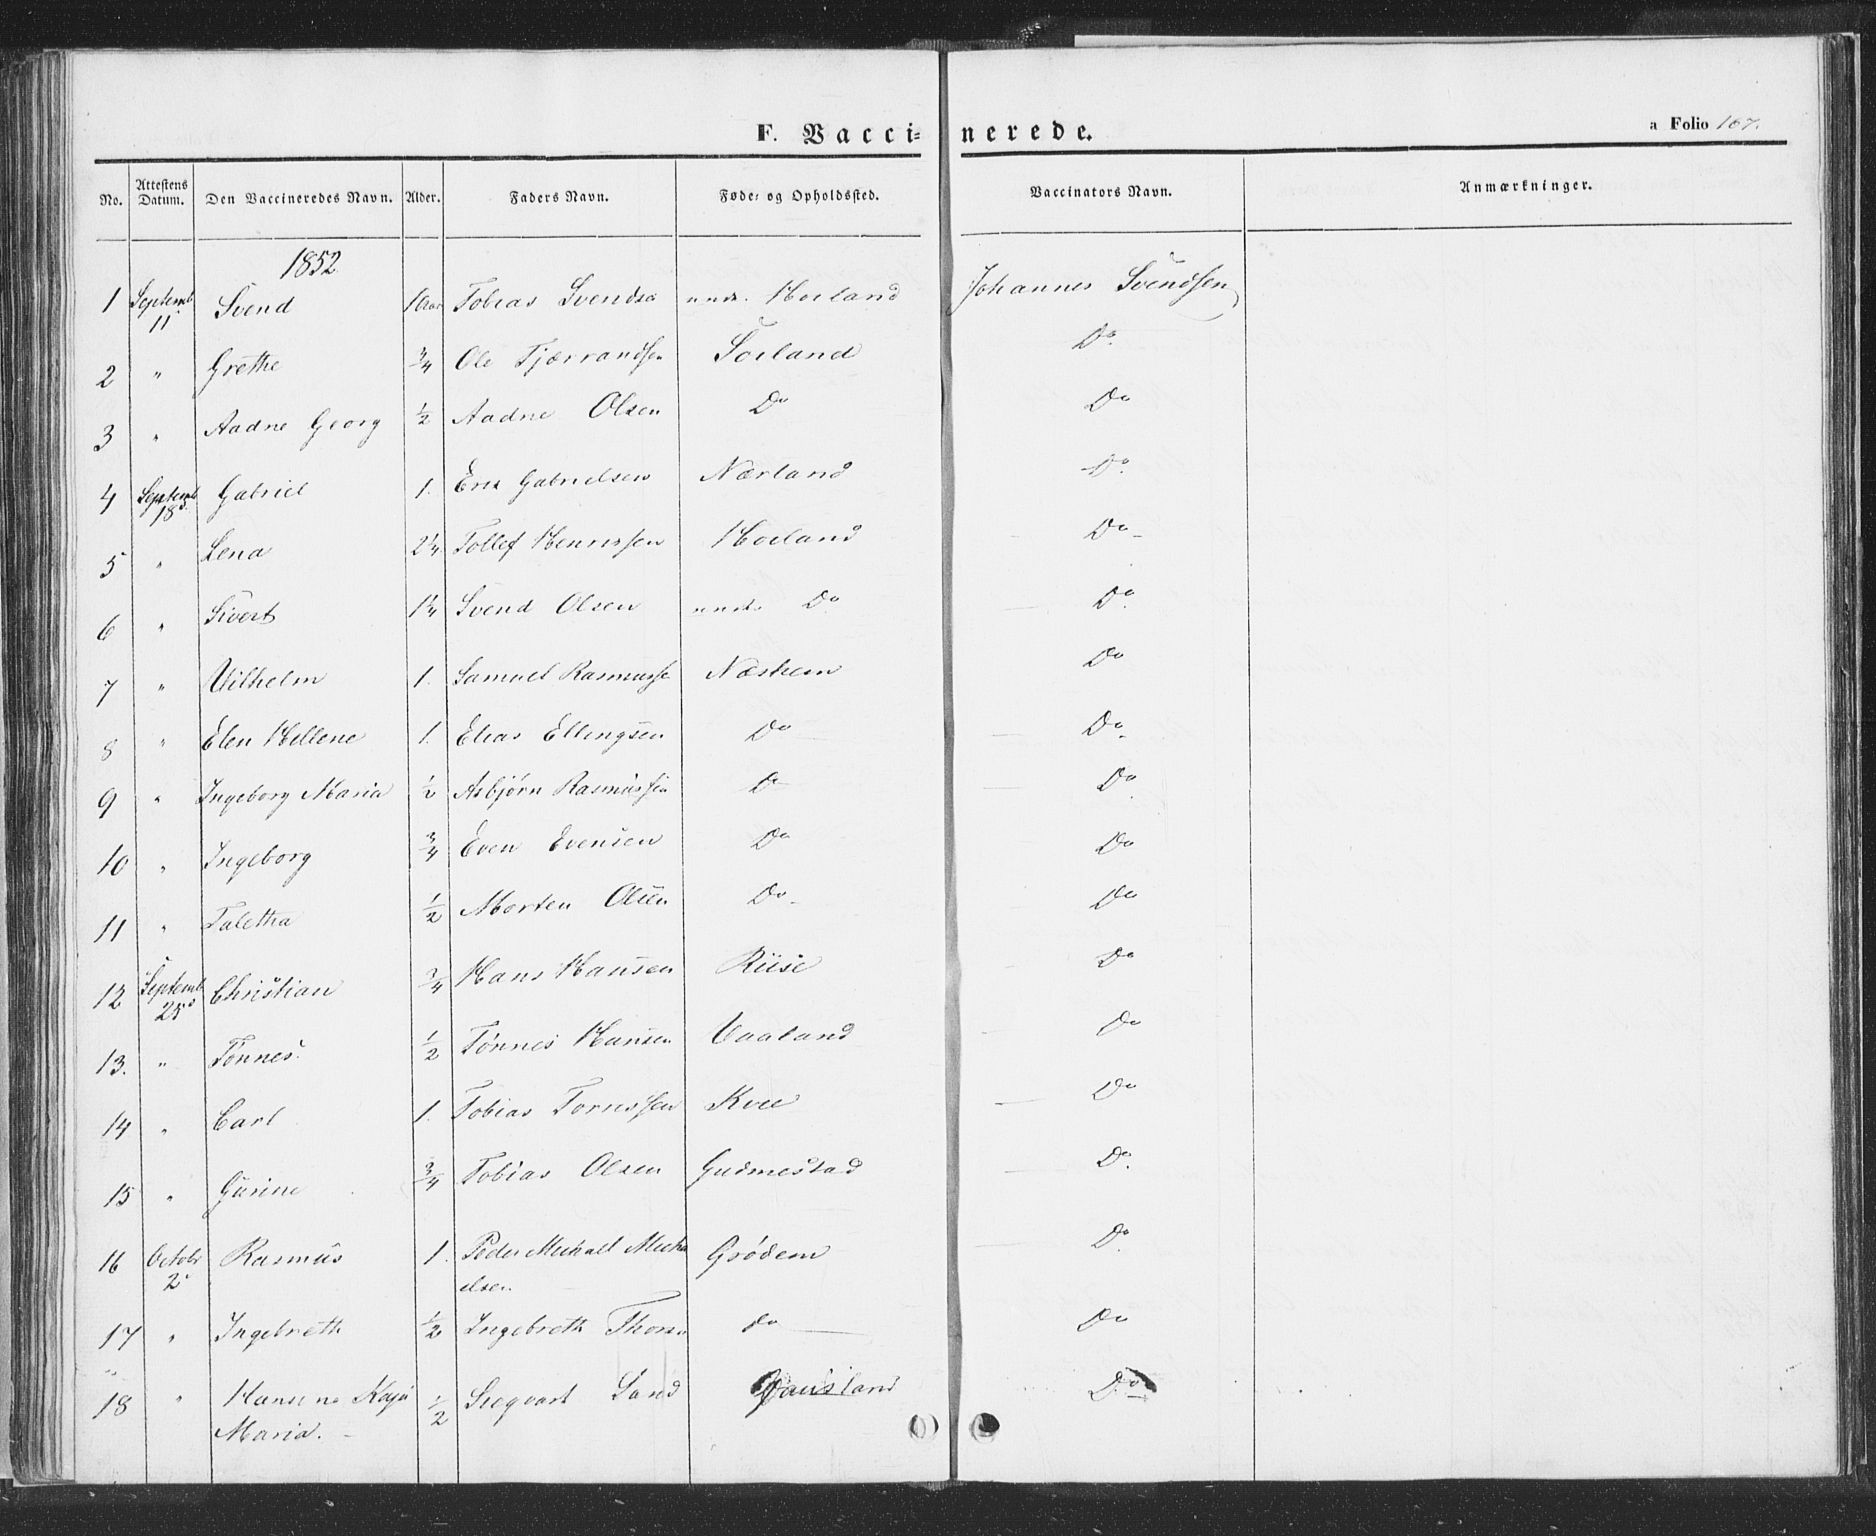 F. Vaccinerede.
a Folio 167.
No. Attestens Datum. Den Vaccineredes Navn. Alder. Faders Navn. Føde- og Opholdssted. Vaccinators Navn. Anmærkninger.
1852
1 Septemb 11 Svend 1 Aar Tobias Svends unds. Horland Johannes Svendsen
2 " Grethe 3/4 Ole Tjærrandsen Sorland Do
3 " Aadne Georg 1/2 Aadne Olsen Do Do
4 Septemb 18 Gabriel 1. Eric Gabrielsen Nærland Do
5 " Lena 2 1/4 Tollef Henrissen Horland Do
6 " Sivert 1 1/4 Svend Olsen unds Do Do
7 " Vilhelm 1. Samuel Rasmusse Næshem Do
8 " Elen Hellene 1. Elias Ellingsen Do Do
9 " Ingeborg Maria 1/2 Asbjørn Rasmussen Do Do
10 " Ingeborg 3/4 Even Evensen Do Do
11 " Taletha 1/2 Morten Olsen Do Do
12 Septemb 25 Christian 3/4 Hans Hansen Riise Do
13. " Tønnes. 1/2 Tønnes Hansen Vaaland Do
14 " Carl 1. Tobias Tornssen Kvie Do
15 " Gurine 3/4 Tobias Olsen Gudmestad Do
16 Octobr 2 Rasmus 1. Peder Michael Micha Grødem Do
elsen
17 " Ingebreth 1/2 Ingebreth Thors do Do
18 " Hansine Kaja 1/2 Siegvart Land Do
Maria.